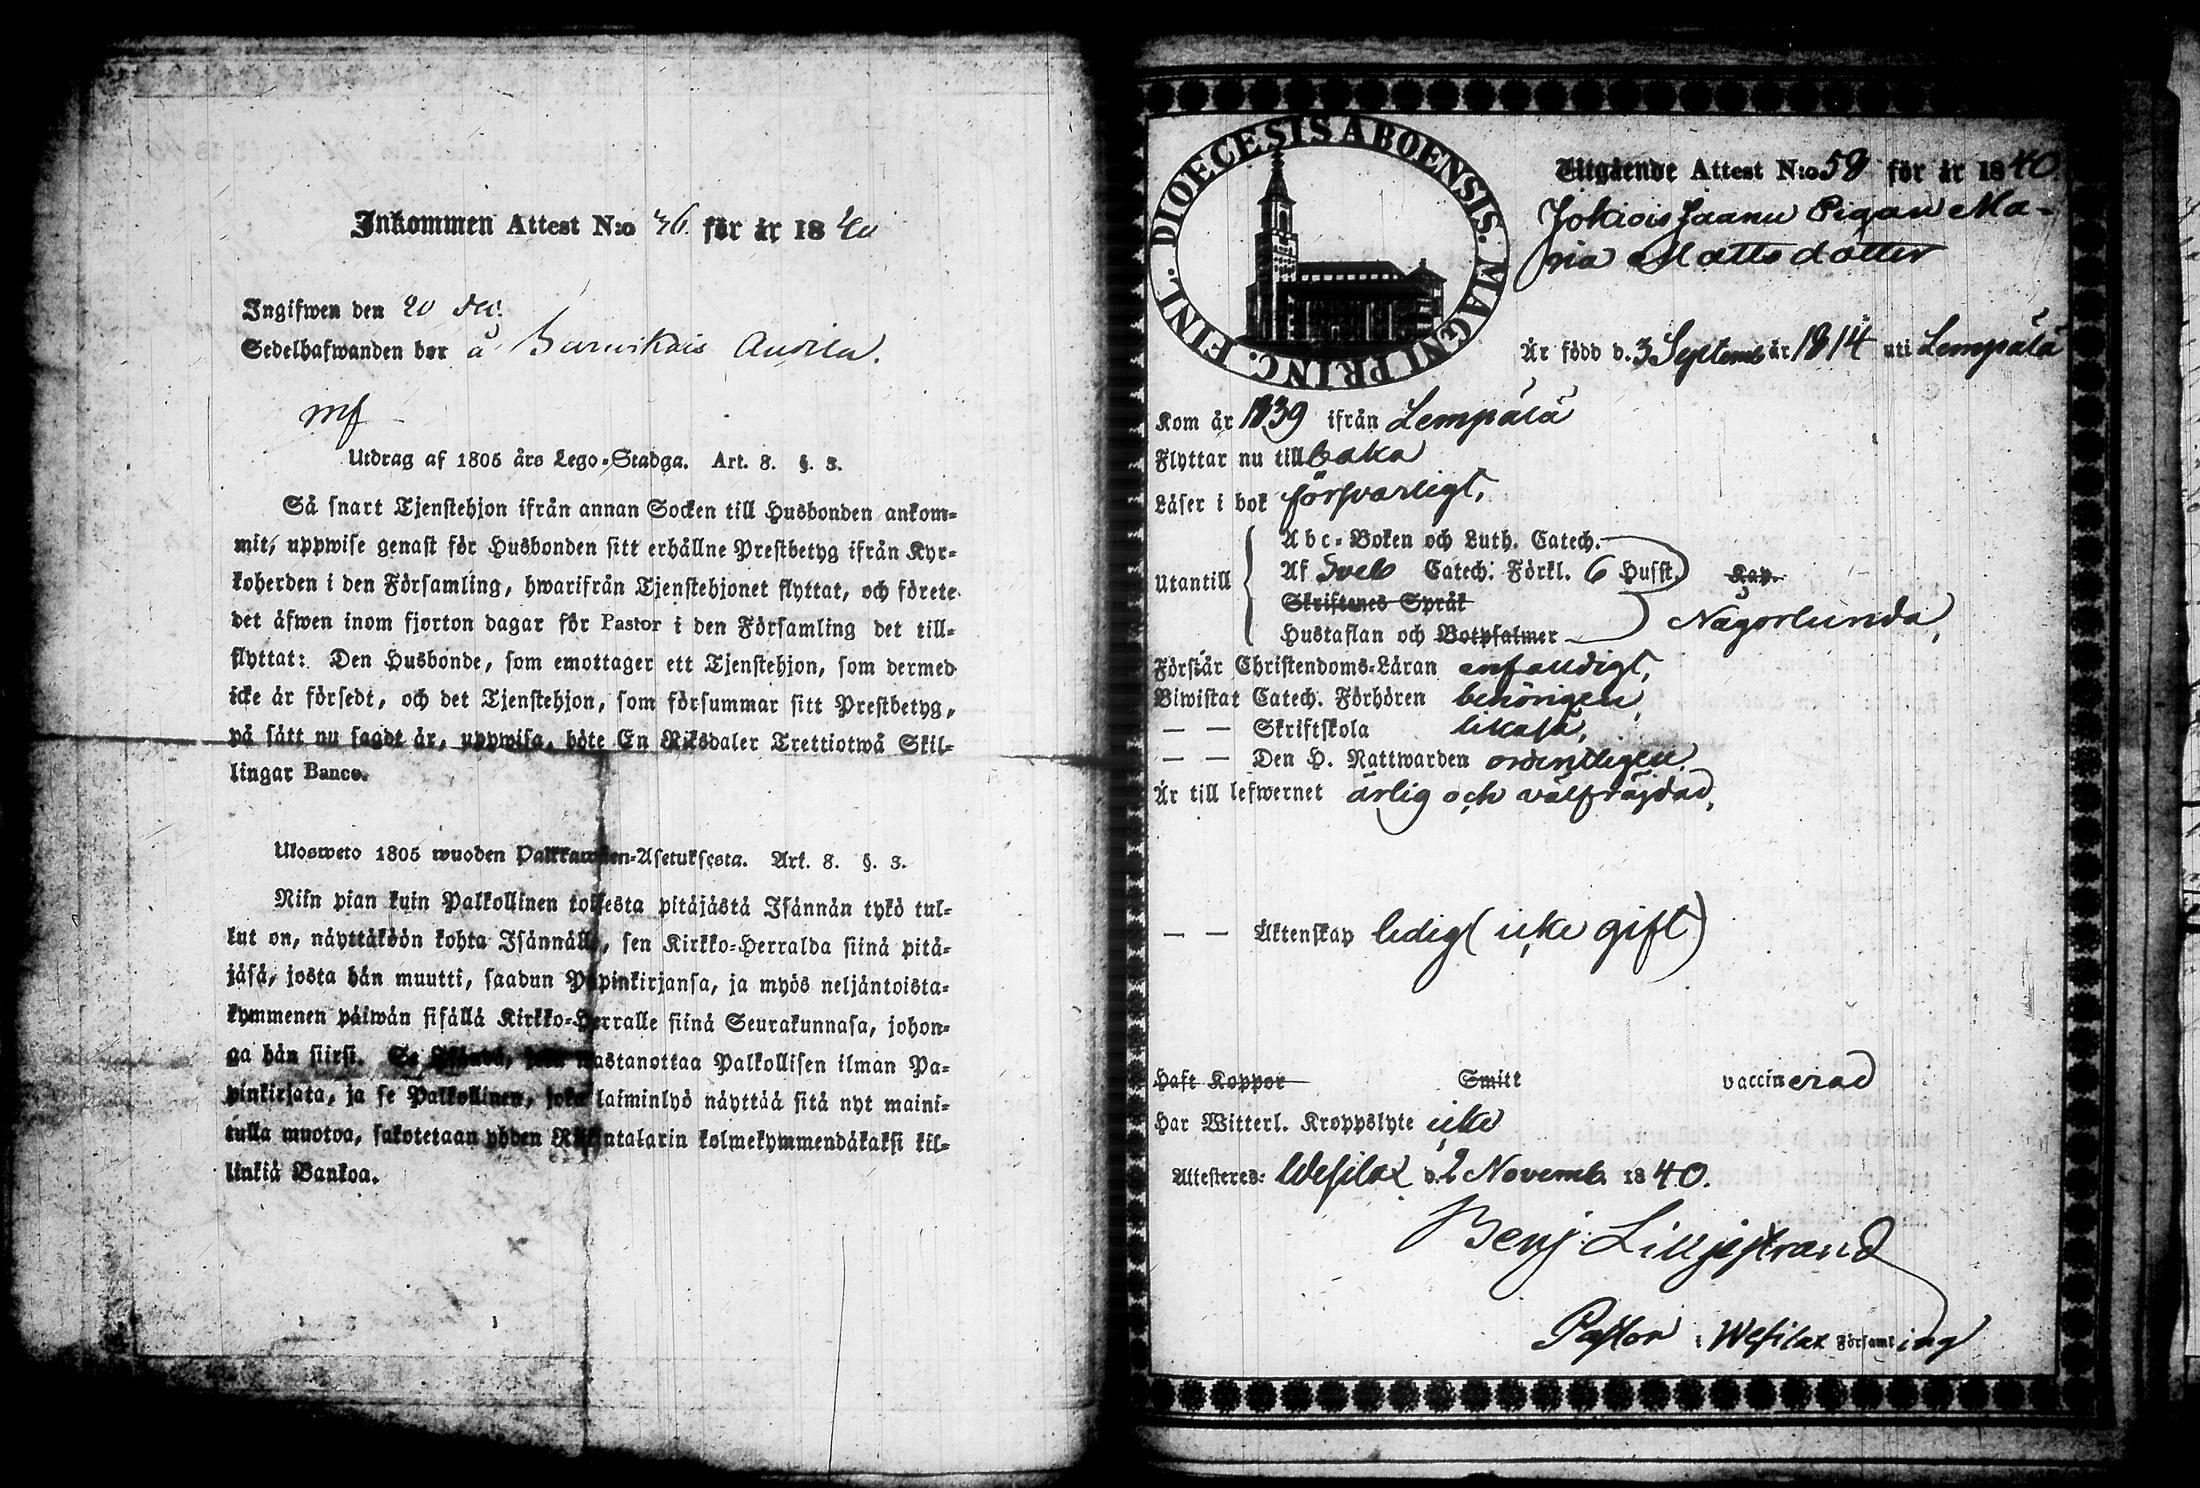 Inkommen Attest N:o 36. för år 1840
Ingifwen den 20 Dec.
Sedelhafwanden bor å Auvila.
mf
Utdrag af 1805 års Lego-Stadga. Art. 8. §. 3.
Så snart Tjenstehjon ifrån annan Socken till Husbonden ankom-
mit, uppwise genast för Husbonden sitt erhållne Prestbetyg ifrån Kyr-
koherden i den Församling, hwarifrån Tjenstehjonet flyttat, och förete
det äfwen inom fjorton dagar för Pastor i den Församling det till-
flyttat: Den Husbonde, som emottager ett Tjenstehjon, som dermed
icke är försedt, och det Tjenstehjon, som försummar sitt Prestbetyg,
på sätt nu sagdt är, uppwisa, böte En Riksdaler Trettiotwå Skil-
lingar Banco.
Ulosweto 1805 wuoden Palkkawäen-Asetuksesta. Art. 8. §. 3.
Niin pian kuin Palkollinen toisesta pitäjästä Isännän tykö tul-
lut on, näyttäköön kohta Isännälle, sen Kirkko-Herralda siinä pitä-
jäsä, josta hän muutti, saadun Papinkirjansa, ja myös neljäntoista-
kymmenen päiwän sisällä Kirkko-Herralle siinä Seurakunnasa, johon-
ga hän siirsi. Se Isäntä, joka wastanottaa Palkollisen ilman Pa-
pinkirjata, ja se Palkollinen, joka laiminlyö näyttää sitä nyt maini-
tulla muotoa, sakotetaan yhden Riikintalarin kolmekymmendäkaksi kil-
linkiä Bankoa.
DIOECESIS ABOENSIS. MAGNI PRINC. FINL.
Utgående Attest N:o 58 för år 1840
Jokiois Jaanu Pigan Ma-
ria Mattsdotter
Är född d. 3 Septemb år 1814 uti Lempälä
Kom år 1839 ifrån Lempälä
Flyttar nu tillbaka
Läser i bok försvarligt,
Utantill
Abc-Boken och Luth. Catech.
Af Sveb Catech. Förkl. 6 Husst. Kap.
Skriftenes Språk
Hustaflan och Botpsalmer Någorlunda,
Förstår Christendoms-Läran enfaldigt,
Biwistat Catech. Förhören behörigen,
— — Skriftskola likaså,
— — Den H. Nattwarden ordentligen,
Är till lefwernet ärlig och välfräjdad,
— — Äktenskap ledig (icke gift)
Haft Koppor Smitt vaccinerad
Har Witterl. Kroppslyte icke
Attesteres: Wesilax d. 2 Novemb. 1840.
Benj. Liljestrand
Pastor i Wesilax Församling